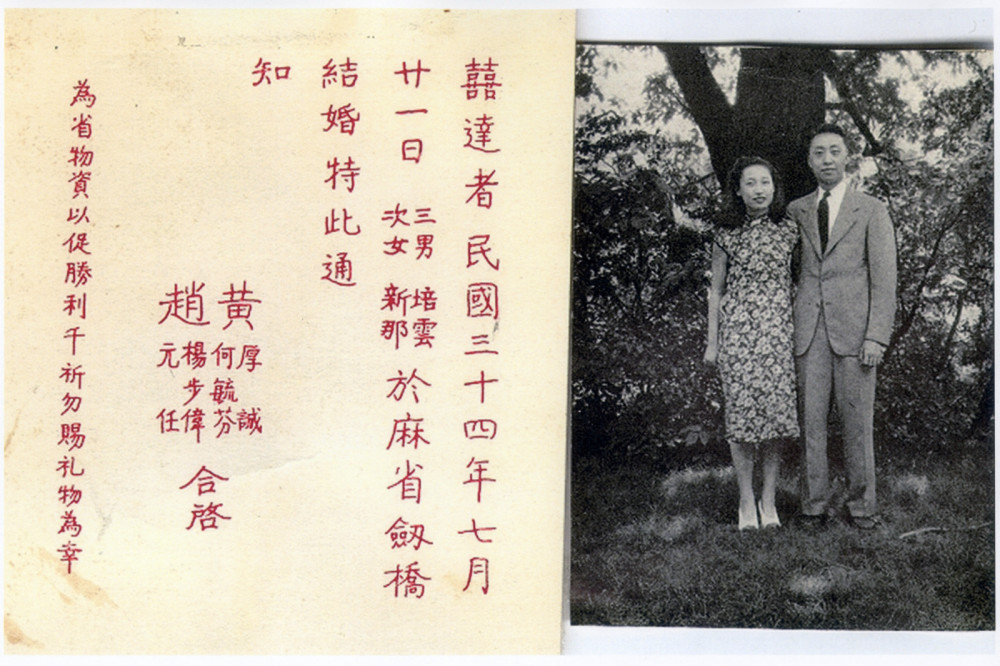 囍達者民國三十四年七月
廿一日三男培雲次女新那於麻省劔橋
結婚特此通
知
黃厚誠何毓芬
趙楊步偉元任
合啓
為省物資以促勝利千祈勿賜礼物為幸